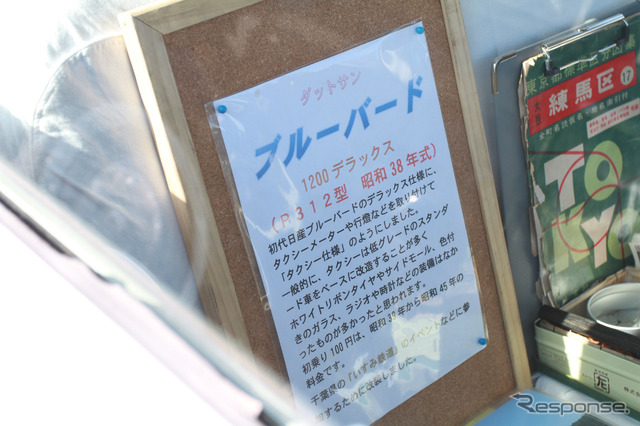 ダットサン
ブルーバード
1200デラックス
(P312型 昭和38年式)
初代日産ブルーバードのデラックス仕様に、
タクシーメーターや行燈などを取り付けて
「タクシー仕様」のようにしました。
一般的に、タクシーは低グレードのスタンダ
ード車をベースに改造することが多く
ホワイトリボンタイヤやサイドモール、色付
きのガラス、ラジオや時計などの装備はなか
ったものが多かったと思われます。
初乗り100円は、昭和39年から昭和45年の
料金です。
千葉県の「いすみ鉄道」のイベントなどに参
加するために改装しました。
東京都標準区分図
練馬区
17
TO
KYO
Response.